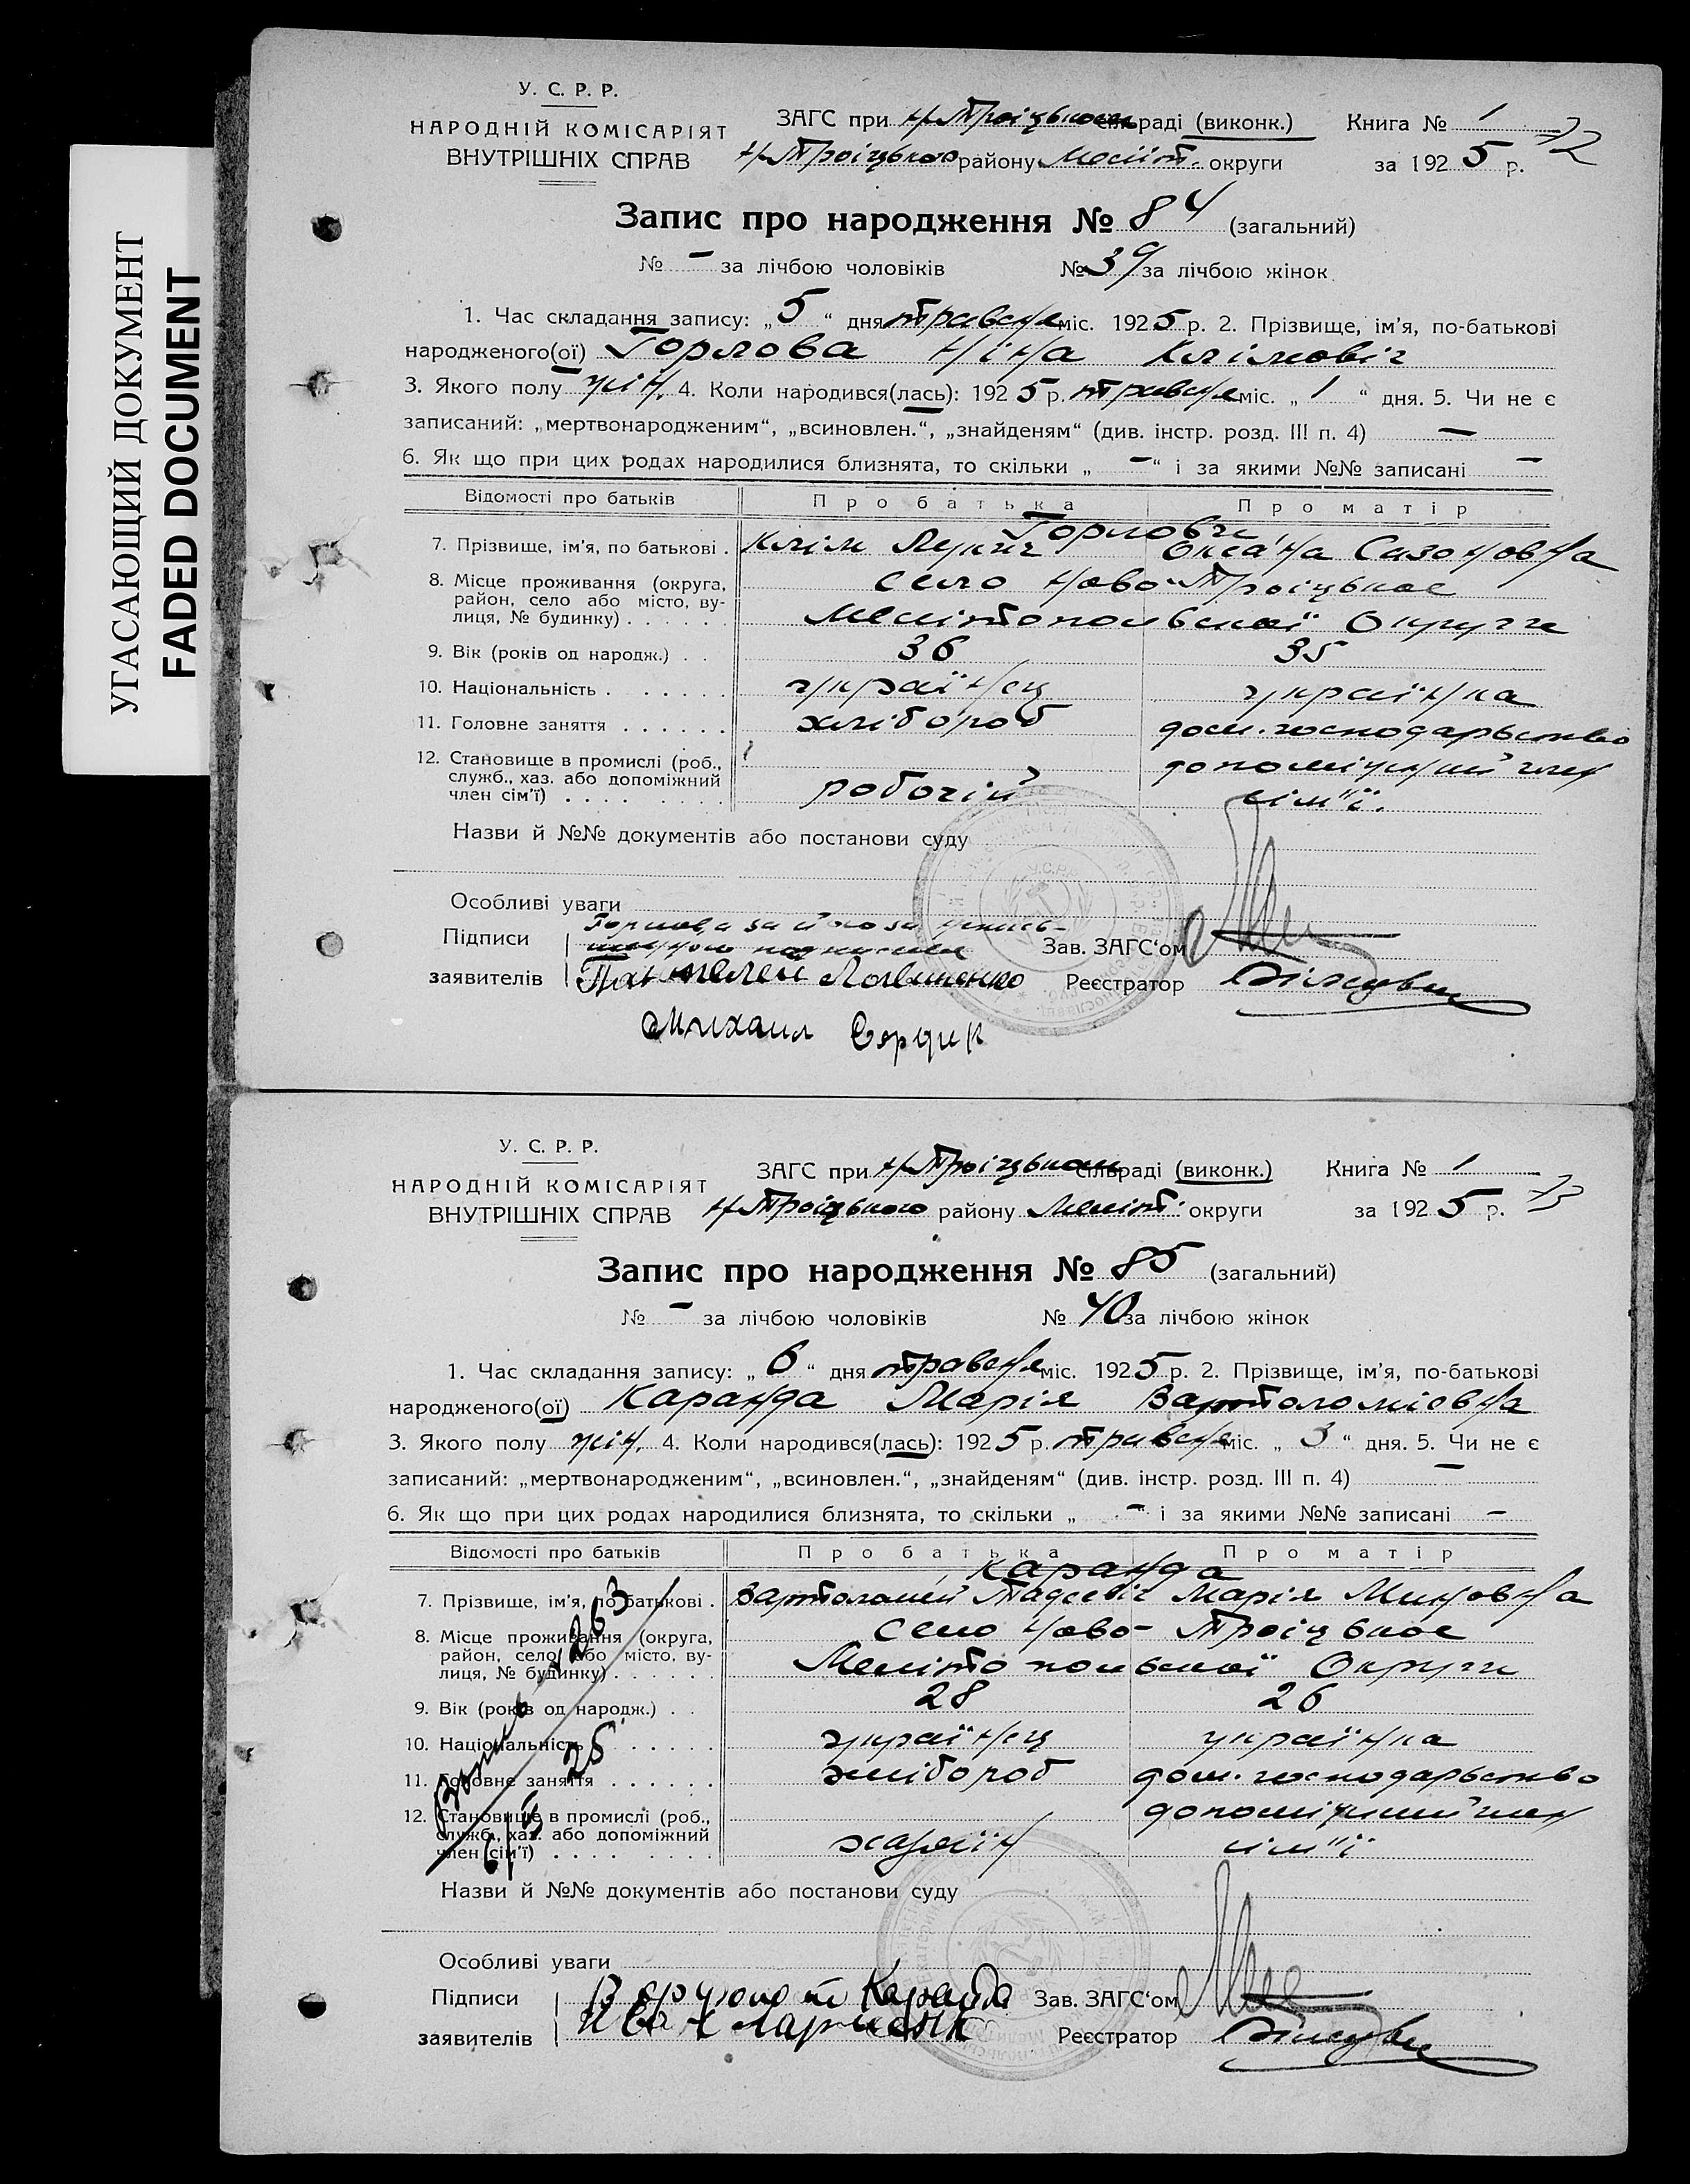 УГАСАЮЩИЙ ДОКУМЕНТ
FADED DOCUMENT
У. С. Р. Р.
НАРОДНІЙ КОМІСАРІЯТ
ВНУТРІШНІХ СПРАВ
ЗАГС при Н-Троіцьком сільраді (виконк.) Книга № 1
Н-Троіцького району Меліт. округи за 1925 р.
72
Запис про народження № 84 (загальний)
№ - за лічбою чоловіків № 39 за лічбою жінок
1. Час складання запису: „5“ дня травеня міс. 1925 р. 2. Прізвище, ім’я, по-батькові
народженого(ої) Горлова Ніна Клімовіч
3. Якого полу жін. 4. Коли народився(лась): 1925 р. травеня міс. „1“ дня. 5. Чи не є
записаний: „мертвонародженим“, „всиновлен.“, „знайденям“ (див. інстр. розд. III п. 4) —
6. Як що при цих родах народилися близнята, то скільки „-“ і за якими №№ записані -
Відомості про батьків Про батька Про матір
Горлови
7. Прізвище, ім’я, по батькові . Клім Лукич Оксана Сазоновна
8. Місце проживання (округа, село Ново-Троіцькое
район, село або місто, ву-
лиця, № будинку) . . . . . . Мелітопольскої Округи
9. Вік (років од народж.) . . 36 35
10. Національність . . . . . . . українец українка
11. Головне заняття . . . . . . хлібороб дом. господарьство
12. Становище в промислі (роб., допоміжний член
служб., хаз. або допоміжний
член сім’ї) . . . . . . . . робочій сім"ї.
Назви й №№ документів або постанови суду
Особливі уваги
Підписи
заявителів Пантелей Логвиненко
Михаил Сердюк
Зав. ЗАГС‘ом
Реєстратор
У. С. Р. Р.
НАРОДНІЙ КОМІСАРІЯТ
ВНУТРІШНІХ СПРАВ
ЗАГС при Н-Троіцьком сільраді (виконк.) Книга № 1
Н-Троіцького району Меліт. округи за 1925 р.
73
Запис про народження № 85 (загальний)
№ - за лічбою чоловіків № 40 за лічбою жінок
1. Час складання запису: „6“ дня травеня міс. 1925 р. 2. Прізвище, ім’я, по-батькові
народженого(ої) Каранда Марія Вартоломіевна
3. Якого полу жін. 4. Коли народився(лась): 1925 р. травеня міс. „3“ дня. 5. Чи не є
записаний: „мертвонародженим“, „всиновлен.“, „знайденям“ (див. інстр. розд. III п. 4) —
6. Як що при цих родах народилися близнята, то скільки „-“ і за якими №№ записані -
Відомості про батьків Про батька Про матір
Каранда
7. Прізвище, ім’я, по батькові . Вартоломей Тадеевіч Марія Миновна
8. Місце проживання (округа, село Ново-Троіцькое
район, село або місто, ву-
лиця, № будинку) . . . . . . Мелітопольскої Округи
9. Вік (років од народж.) . . 28 26
10. Національність . . . . . . українец українка
11. Головне заняття . . . . . . хлібороб дом. господарьство
12. Становище в промислі (роб., допоміжний член
служб., хаз. або допоміжний
член сім’ї) . . . . . . . . хазяїн сім"ї
Назви й №№ документів або постанови суду
Особливі уваги
Підписи Каранда Зав. ЗАГС‘ом
заявителів Иван Реєстратор